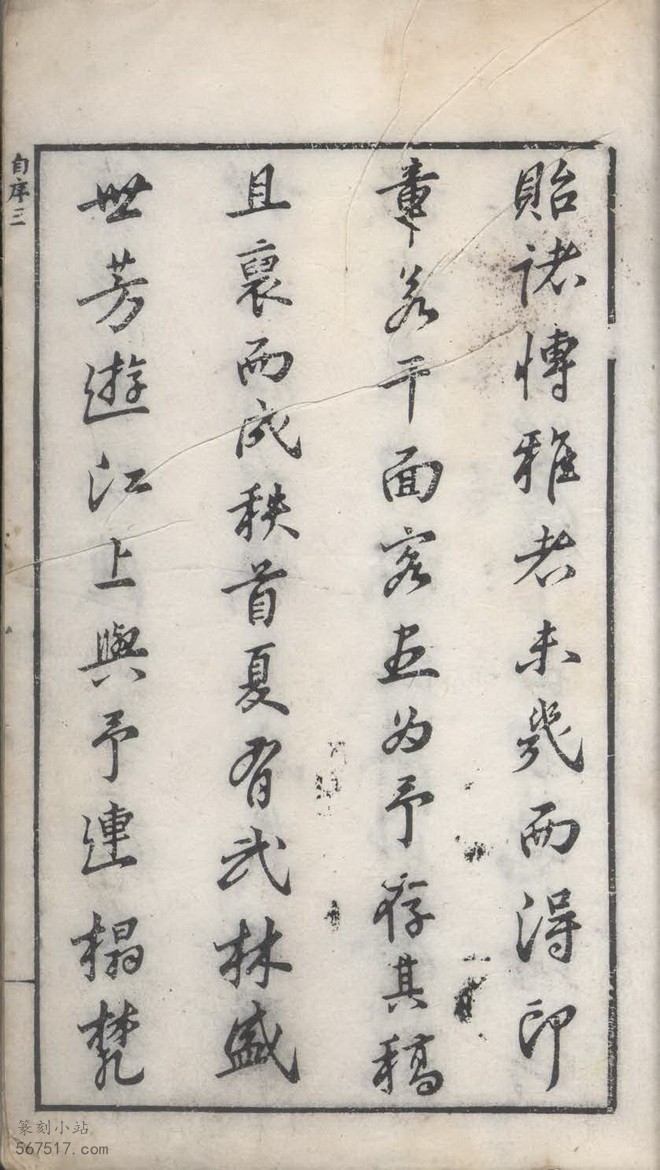 貽諸愽雅者未幾而得印
章若干面客為予存其稿
且裒而成秩首夏有武林盛
世芳遊江上與予連榻
自序 三
篆刻小站
567517.com